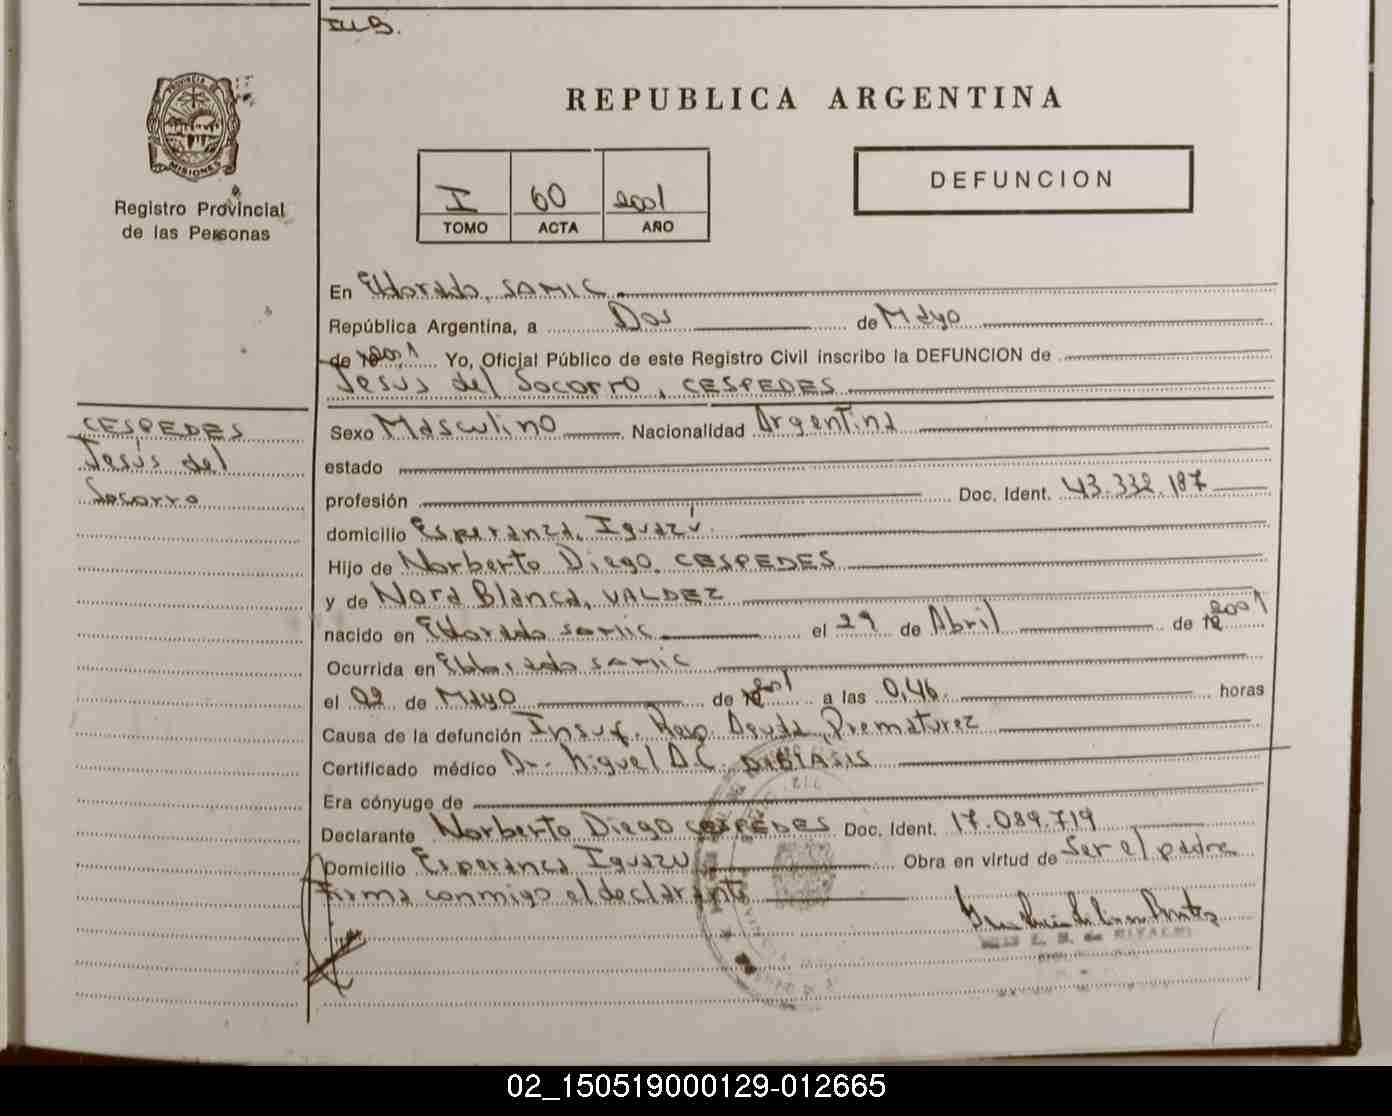 PROVINCIA DE
MISIONES
Registro Provincial
de las Personas
REPUBLICA ARGENTINA
I 60 2001
TOMO ACTA AÑO
DEFUNCION
En Eldorado, SAMIC
República Argentina, a Dos de Mayo
de 2001 Yo, Oficial Público de este Registro Civil inscribo la DEFUNCION de
Jesús del Socorro, CESPEDES
CESPEDES
Jesús del
Socorro
Sexo Masculino Nacionalidad Argentina
estado
profesión Doc. Ident. 43.332.187
domicilio Esperanza, Iguazú
Hijo de Norberto Diego, CESPEDES
y de Nora Blanca, VALDEZ
nacido en Eldorado SAMIC el 29 de Abril de 2001
Ocurrida en Eldorado SAMIC
el 02 de Mayo de 2001 a las 0,46 horas
Causa de la defunción Insuf. Resp Aguda, Prematurez
Certificado médico Dr. Miguel A.C. DIBIASIS
Era cónyuge de
Declarante Norberto Diego CESPEDES Doc. Ident. 17.089.719
Domicilio Esperanza Iguazu Obra en virtud de Ser el padre
Firma conmigo el declarante
02_150519000129-012665